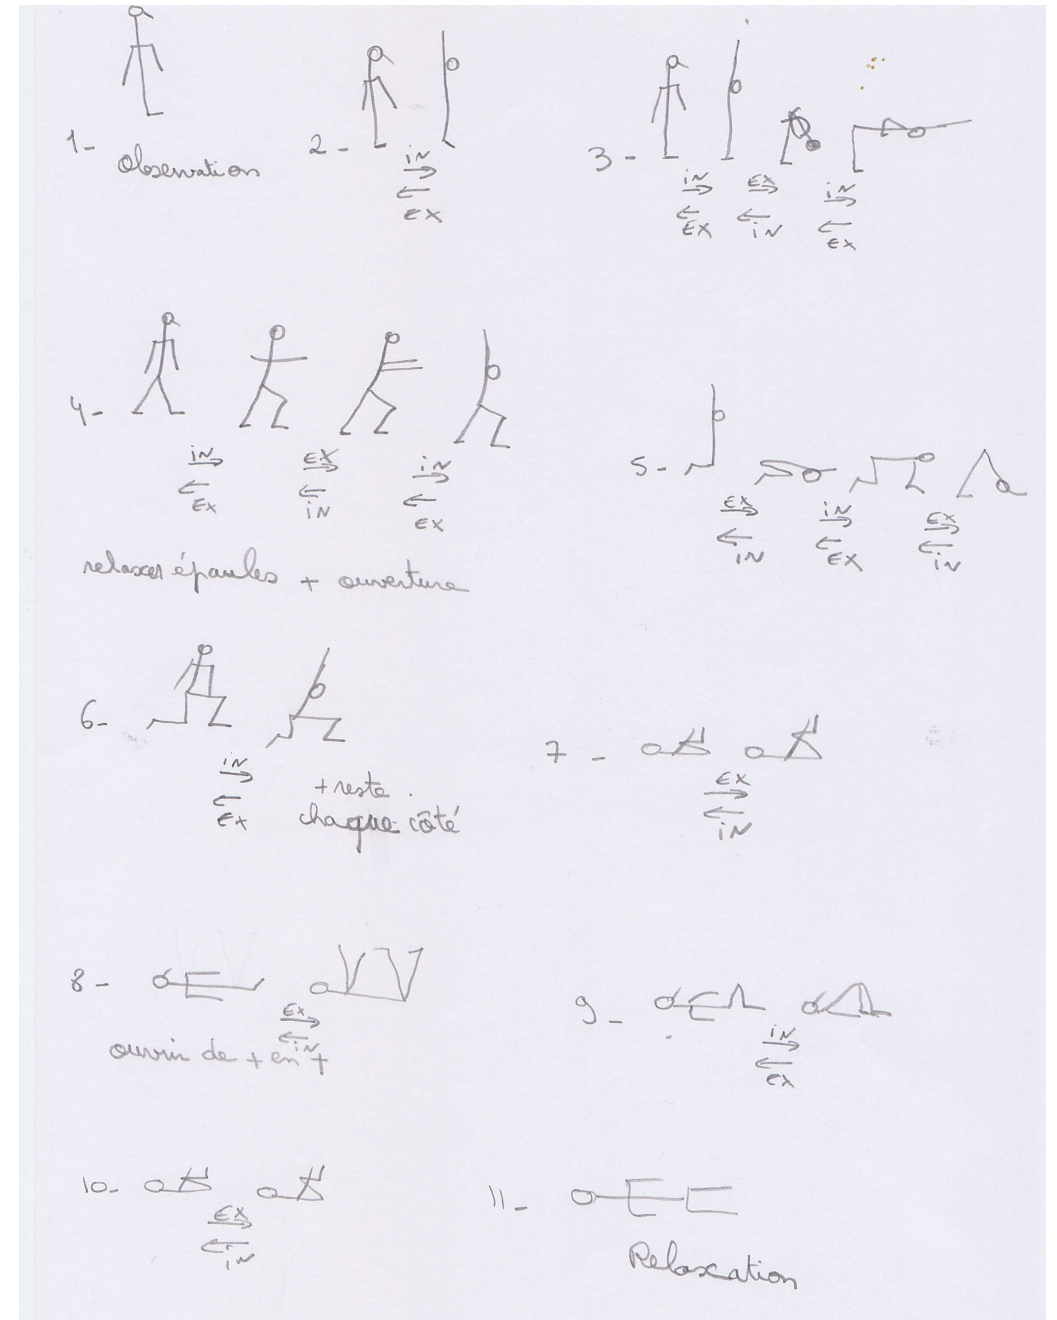 1-
Observation
2-
iN
EX
3-
iN EX iN
EX iN EX
4-
iN EX iN
EX iN EX
relaxer épaules + ouverture
5-
EX iN EX
iN EX iN
6-
iN
EX
+ reste
chaque côté
7-
EX
iN
8-
EX
iN
ouvrir de + en +
9-
iN
EX
10-
EX
iN
11-
Relaxation